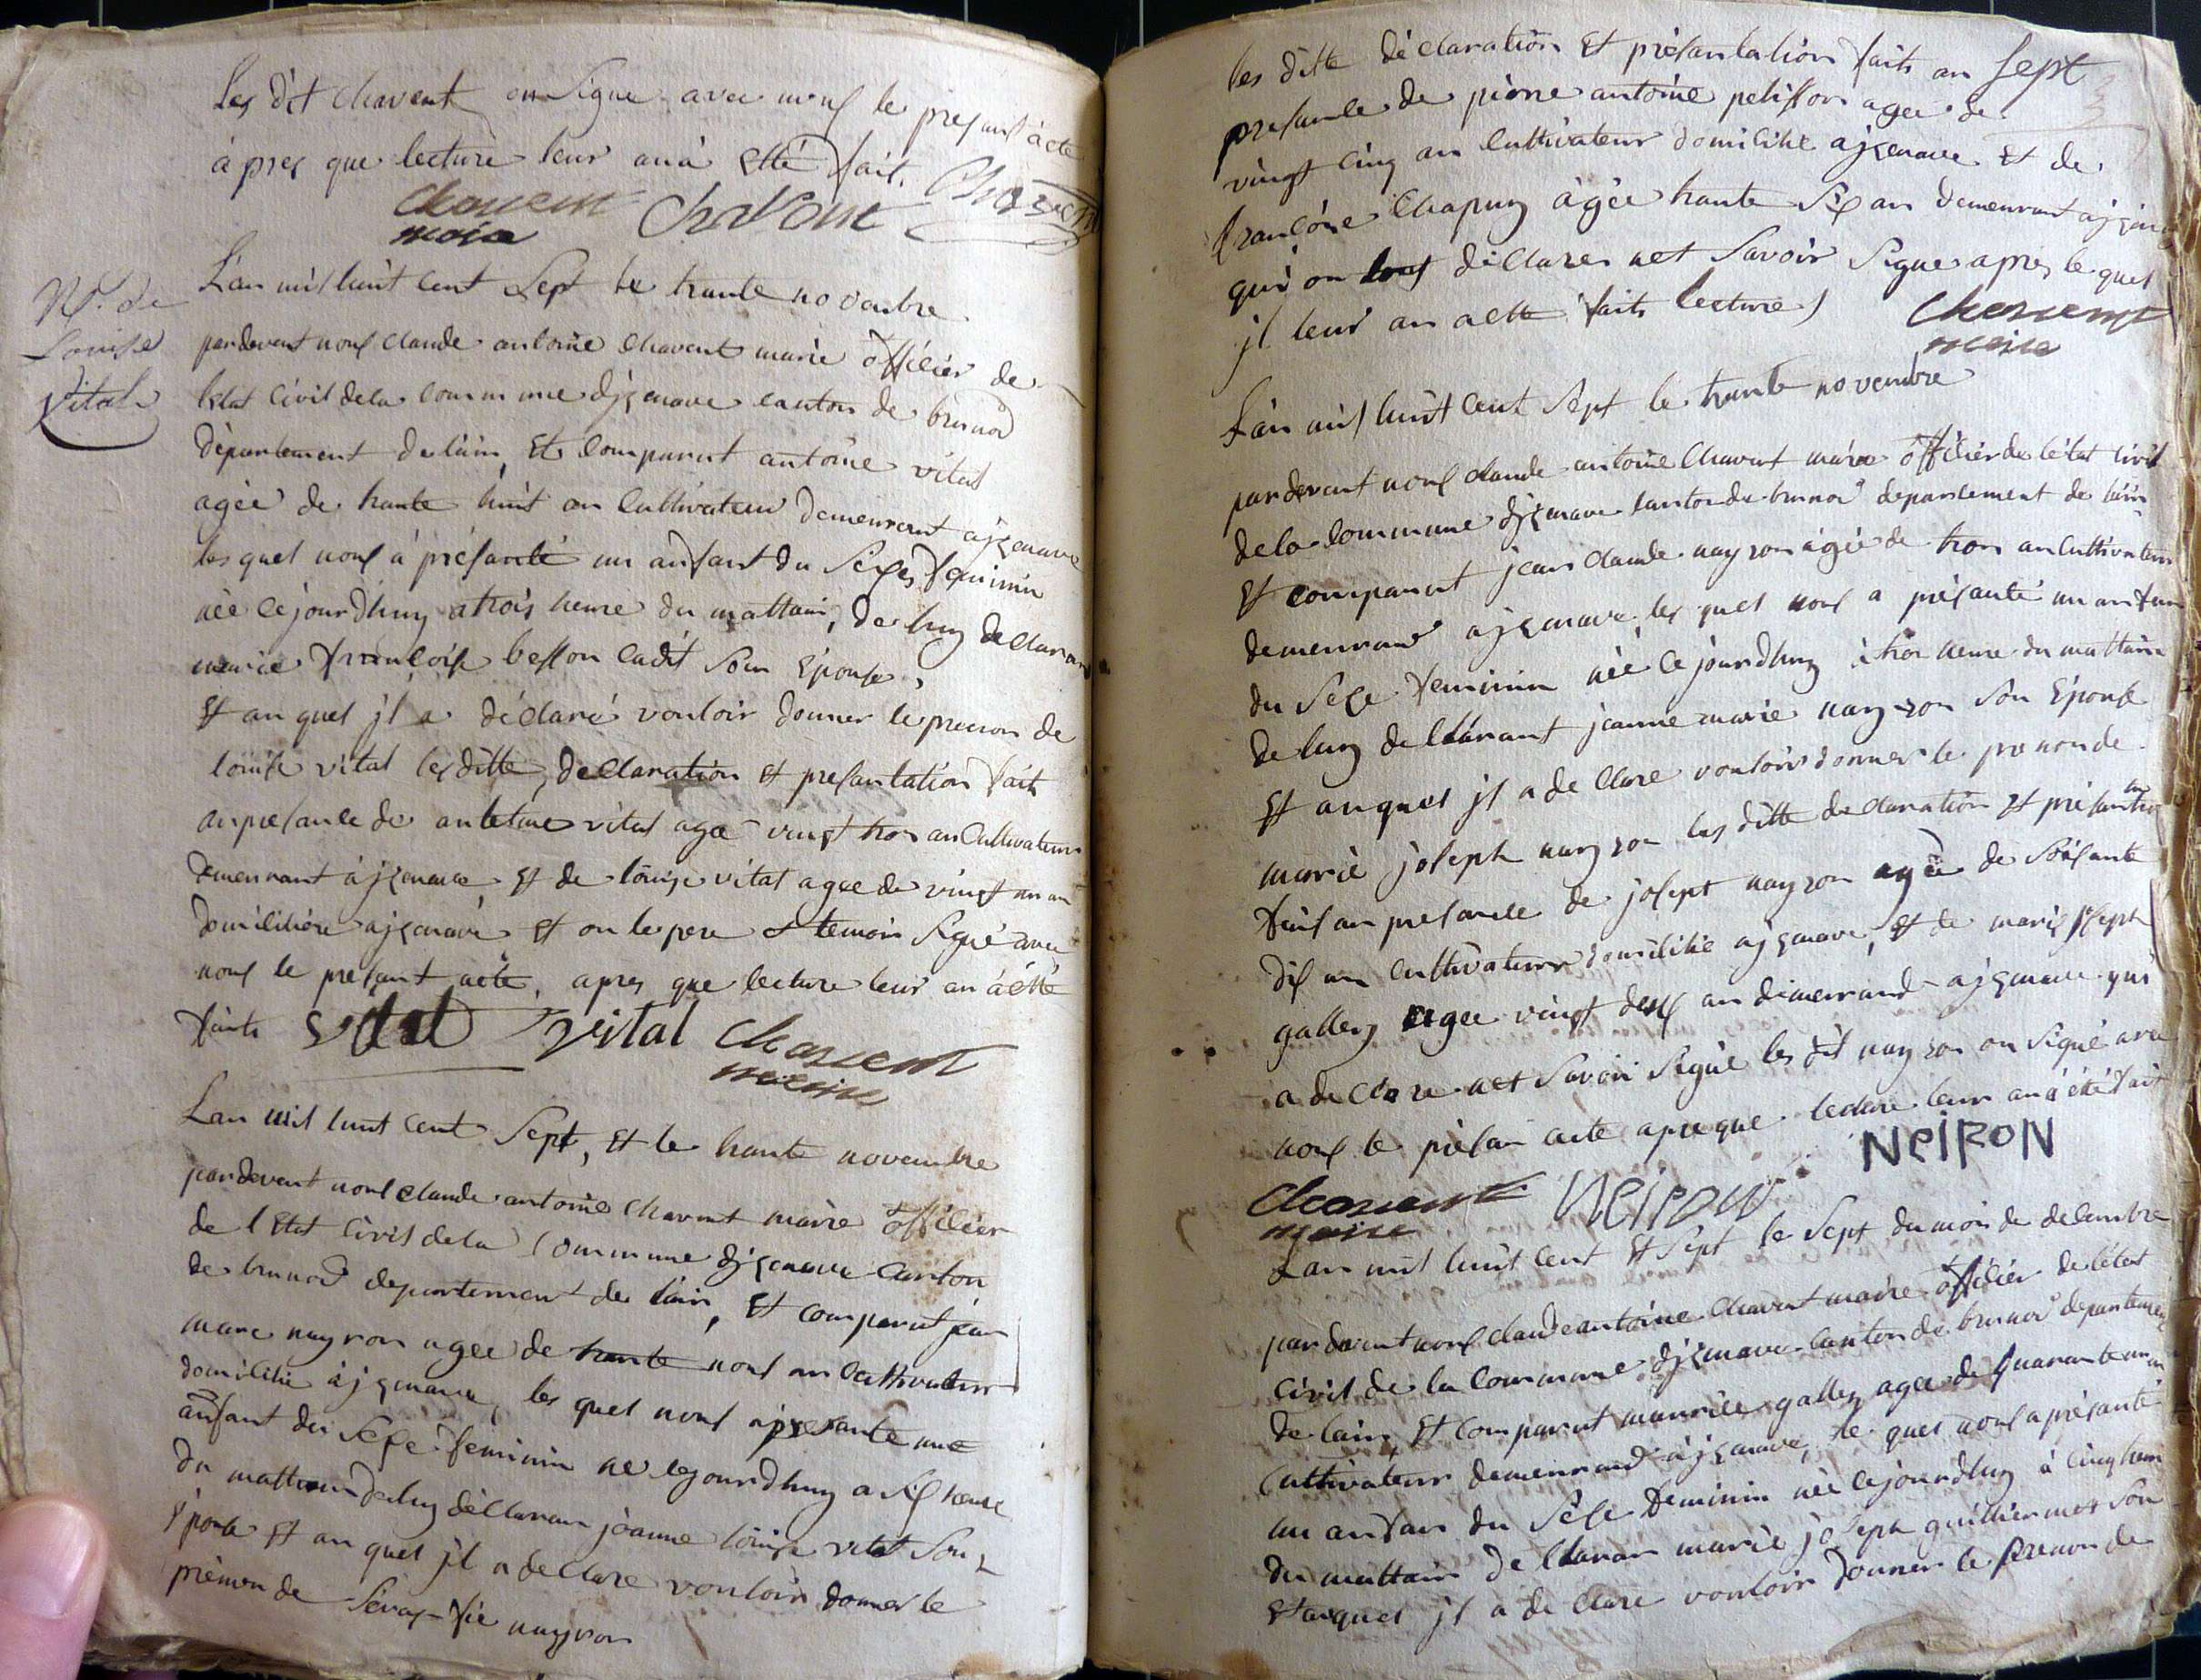 les dit Chavent on Signe avec nous le presant acte
àpres que lecture leur an à etté fait.
Chavent Chavent Chavent
maire
L'an mil huit cent Sept le trante novanbre
N. de
Louise
Vital
pardevant nous claude antoine Chavent marie officier de
letat Civil dela commune djzenave canton de brenod
département de lain, Et comparut antoine vital
agée de trante huit an Cultivateur demeurant ajzenave
les quel nous à présanté un anfant du Sexes feminin
née ce jourdhuy a trois heure du mattain, de luy declarant
marie francoise besson cadit Son Epouse,
Et au quel jl a déclaré vouloir donner le prenon de
louise vital les ditte, declaration et presantation fait
an presance de antoine vital agée vingt trois an Cultivateur
demeurant àjzenave Et de louise vital agée de vingt un an
domiciliée ajzenave Et on le pere et temoin Signé avec
nous le présant acte, apres que lecture leur an à etté
faite vital vital Chavent
maire
Lan mil huit cent Sept, Et le trante novembre
pardevent nous claude antoine Chavent maire officier
de l Etat Civil dela Commune djzenave Canton
de brenod departement de lain, Et comparut jean
marc nayron agée de trante nous an Cultivateur
domicilié àjzenave, les quel nous a presanté une
anfant du Sexe feminin né cejourdhuy a Six heure
du mattain deluy déclarant jeanne louise vital Son
Epouse Et au quel jl a declare vouloir donner le
prénon de nayron
les ditte déclaration Et présantation faite an Sept
presance de pierre antoine pelisson agée de
vingt cinq an Cultivateur domicilié ajzenave Et de
francoise Chapuy àgée trante Six an demeurant ajzenave
qui on tous déclarer net Savoir Signe apres le quel
jl leur an a ette faite lecture Chavent
maire
L'an mil huit cent Sept le trante novembre
pardevant nous claude antoine Chavent maire officier de létat Civil
dela commune djzenave canton de brenod departement de lain
Et comparut jean claude nayron àgée de tran an Cultivateur
demeurant ajzenave les quel nous a présanté un anfan
du Sexe feminin née Ce jourdhuy à troi heure du mattain
de luy declarant jeanne marie nayron Son Epouse
Et auquel jl a declare vouloir donner le prenon de
marie joseph nayron les ditte declaration et présantation
fait an presance de josept nayron agée de Soisante
dix an Cultivateur domicilié ajzenave, et de marie joseph
galley agee vingt deux an demeurand ajzenave qui
a declare net Savoir Signé les dit nayron on Signé avec
nous le présan acte apre que lecture leur an à été fait
Chavent neirou NeIRON
maire
Lan mil huit cent Et Sept le Sept du mois de decembre
pardevant nous claude antoine Chavent maire officier de létat
Civil de la Commune djzenave canton de brenod departement
de lain, Et comparut maurice galley agee de quarante un an
Cultivateur demeurand àjzenave, le quel nous a présanté
un anfan du Sexe feminin née cejourdhuy à cinq heure
du mattain declaran marie joseph guilliermet Son
Et auquel jl a de clare vouloir donner le prenon de